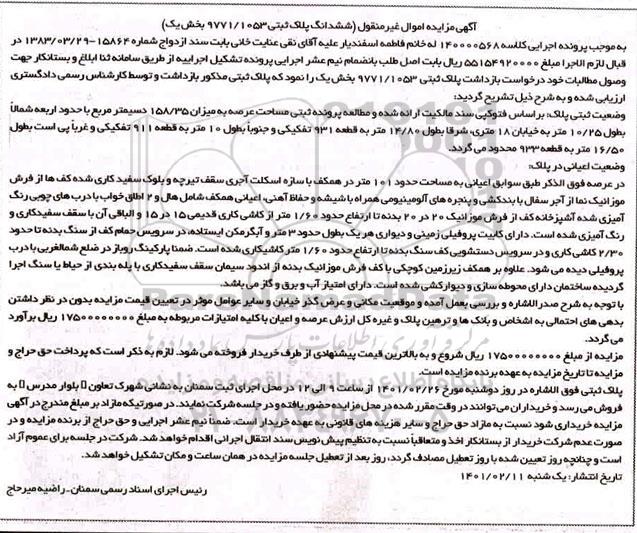 آگهی مزایده اموال غیرمنقول (ششدانگ پلاک ثبتی ۹۷۷۱/۱۰۵۳ بخش یک)
به موجب پرونده اجرایی کلاسه ۱۴۰۰۰۰۵۶۸ له خانم فاطمه اسفندیار علیه آقای نقی عنایت خانی بابت سند ازدواج شماره ۱۵۸۶۴-۱۳۸۳/۰۳/۲۹ در
قبال لازم الاجرا مبلغ ۵۵۱۵۴۹۲۰۰۰۰ ریال بابت اصل طلب بانضمام نیم عشر اجرایی پرونده تشکیل اجراییه از طریق سامانه ثنا ابلاغ و بستانکار جهت
وصول مطالبات خود درخواست بازداشت پلاک ثبتی ۹۷۷۱/۱۰۵۳ بخش یک را نمود که پلاک ثبتی مذکور بازداشت و توسط کارشناس رسمی دادگستری
ارزیابی شده و به شرح ذیل تشریح گردید:
وضعیت ثبتی پلاک: بر اساس فتوکپی سند مالکیت ارائه شده و مطالعه پرونده ثبتی مساحت عرصه به میزان ۱۵۸/۳۵ دسیمتر مربع با حدود اربعه شمالاً
بطول ۱۰/۲۵ متر به خیابان ۱۸ متری، شرقا بطول ۱۴/۸۰ متر به قطعه ۹۳۱ تفکیکی و جنوباً بطول ۱۰ متر به قطعه ۹۱۱ تفکیکی و غرباً پی است بطول
۱۶/۵۰ متر به قطعه ۹۳۳ محدود می گردد.
وضعیت اعیانی در پلاک:
در عرصه فوق الذکر طبق سوابق اعیانی به مساحت حدود ۱۰۱ متر در همکف با سازه اسکلت آجری سقف تیرچه و بلوک سفید کاری شده کف ها از فرش
موزاییک نما از آجر سفال با بندکشی و پنجره های آلومینیومی همراه با شیشه و حفاظ آهنی، اعیانی همکف شامل هال و ۲ اطاق خواب با درب های چوبی رنگ
آمیزی شده آشپزخانه کف از فرش موزائیک ۲۰ در ۲۰ بدنه تا ارتفاع حدود ۱/۶۰ متر از کاشی کاری قدیمی ۱۵ در ۱۵ و الباقی آن با سقف سفیدکاری و
رنگ آمیزی شده است. دارای کابینت پروفیلی زمینی و دیواری هر یک بطول حدود ۳ متر و آبگرمکن ایستاده، در سرویس حمام کف از سنگ بدنه تا حدود
۲/۳۰ کاشی کاری و در سرویس دستشویی کف سنگ بدنه تا ارتفاع حدود ۱/۶۰ متر کاشیکاری شده است. ضمنا پارکینگ روباز در ضلع شمالغربی با درب
پروفیلی دیده می شود. علاوه بر همکف زیرزمین کوچکی با کف فرش موزائیک بدنه از اندود سیمان سقف سفیدکاری با پله بندی از حیاط با سنگ اجرا
گردیده ساختمان دارای محوطه سازی و دیوارکشی شده است. دارای امتیاز آب و برق و گاز می باشد.
با توجه به شرح صدر الاشاره و بررسی بعمل آمده و موقعیت مکانی و عرض گذر خیابان و سایر عوامل موثر در تعیین قیمت مزایده بدون در نظر داشتن
بدهی های احتمالی به اشخاص و بانک ها و ترهین پلاک و غیره کل ارزش عرصه و اعیان با کلیه امتیازات مربوطه به مبلغ ۱۷۵۰۰۰۰۰۰۰۰ ریال برآورد
می گردد.
مزایده از مبلغ ۱۷۵۰۰۰۰۰۰۰۰ ریال شروع و به بالاترین قیمت پیشنهادی از طرف خریدار فروخته می شود. لازم به ذکر است که پرداخت حق حراج و
مزایده تا تاریخ مزایده به عهده برنده مزایده است.
پلاک ثبتی فوق الاشاره در روز دوشنبه مورخ ۱۴۰۱/۰۲/۲۶ از ساعت ۹ الی ۱۲ در محل اجرای ثبت سمنان به نشانی شهرک تعاون بلوار مدرس به
فروش می رسد و خریداران می توانند در وقت مقرر شده در محل مزایده حضور یافته و در جلسه شرکت نمایند. در صورتیکه مازاد بر مبلغ مندرج در آگهی
مزایده خریداری شود نسبت به مازاد حق حراج و سایر هزینه های قانونی به عهده خریدار است، ضمناً نیم عشر اجرایی و حق حراج از برنده مزایده و در
صورت عدم شرکت خریدار از بستانکار اخذ و متعاقباً نسبت به تنظیم پیش نویس سند انتقال اجرائی اقدام خواهد شد. شرکت در جلسه برای عموم آزاد
است و چنانچه روز تعیین شده با روز تعطیل مصادف گردد، روز بعد از تعطیل جلسه مزایده در همان ساعت و مکان تشکیل خواهد شد.
تاریخ انتشار: یک شنبه ۱۴۰۱/۰۲/۱۱
رئیس اجرای اسناد رسمی سمنان- راضیه میرحاج